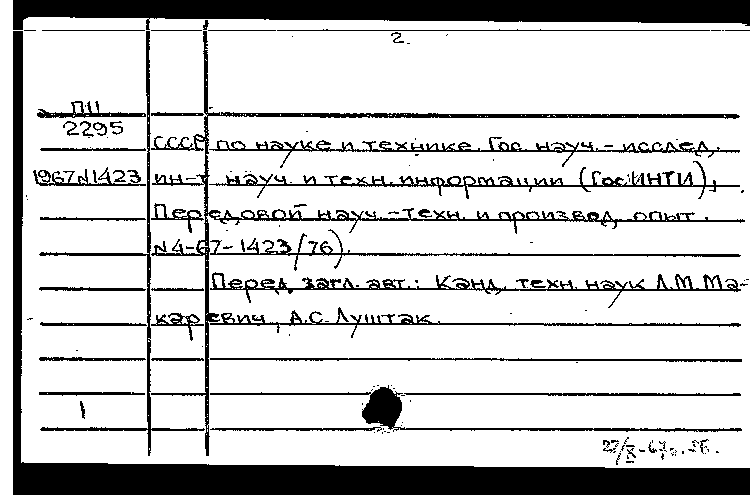 2.
П11
2295
СССР по науке и технике. Гос. науч.-исслед.
1967N1423 ин-т науч. и техн. информации (ГосИНТИ);
Передовой науч.-техн. и произвед. опыт.
N4-67-1423/76).
Перед загл. авт.: Канд. техн. наук Л.М. Ма-
каревич, А.С. Луштак.
1